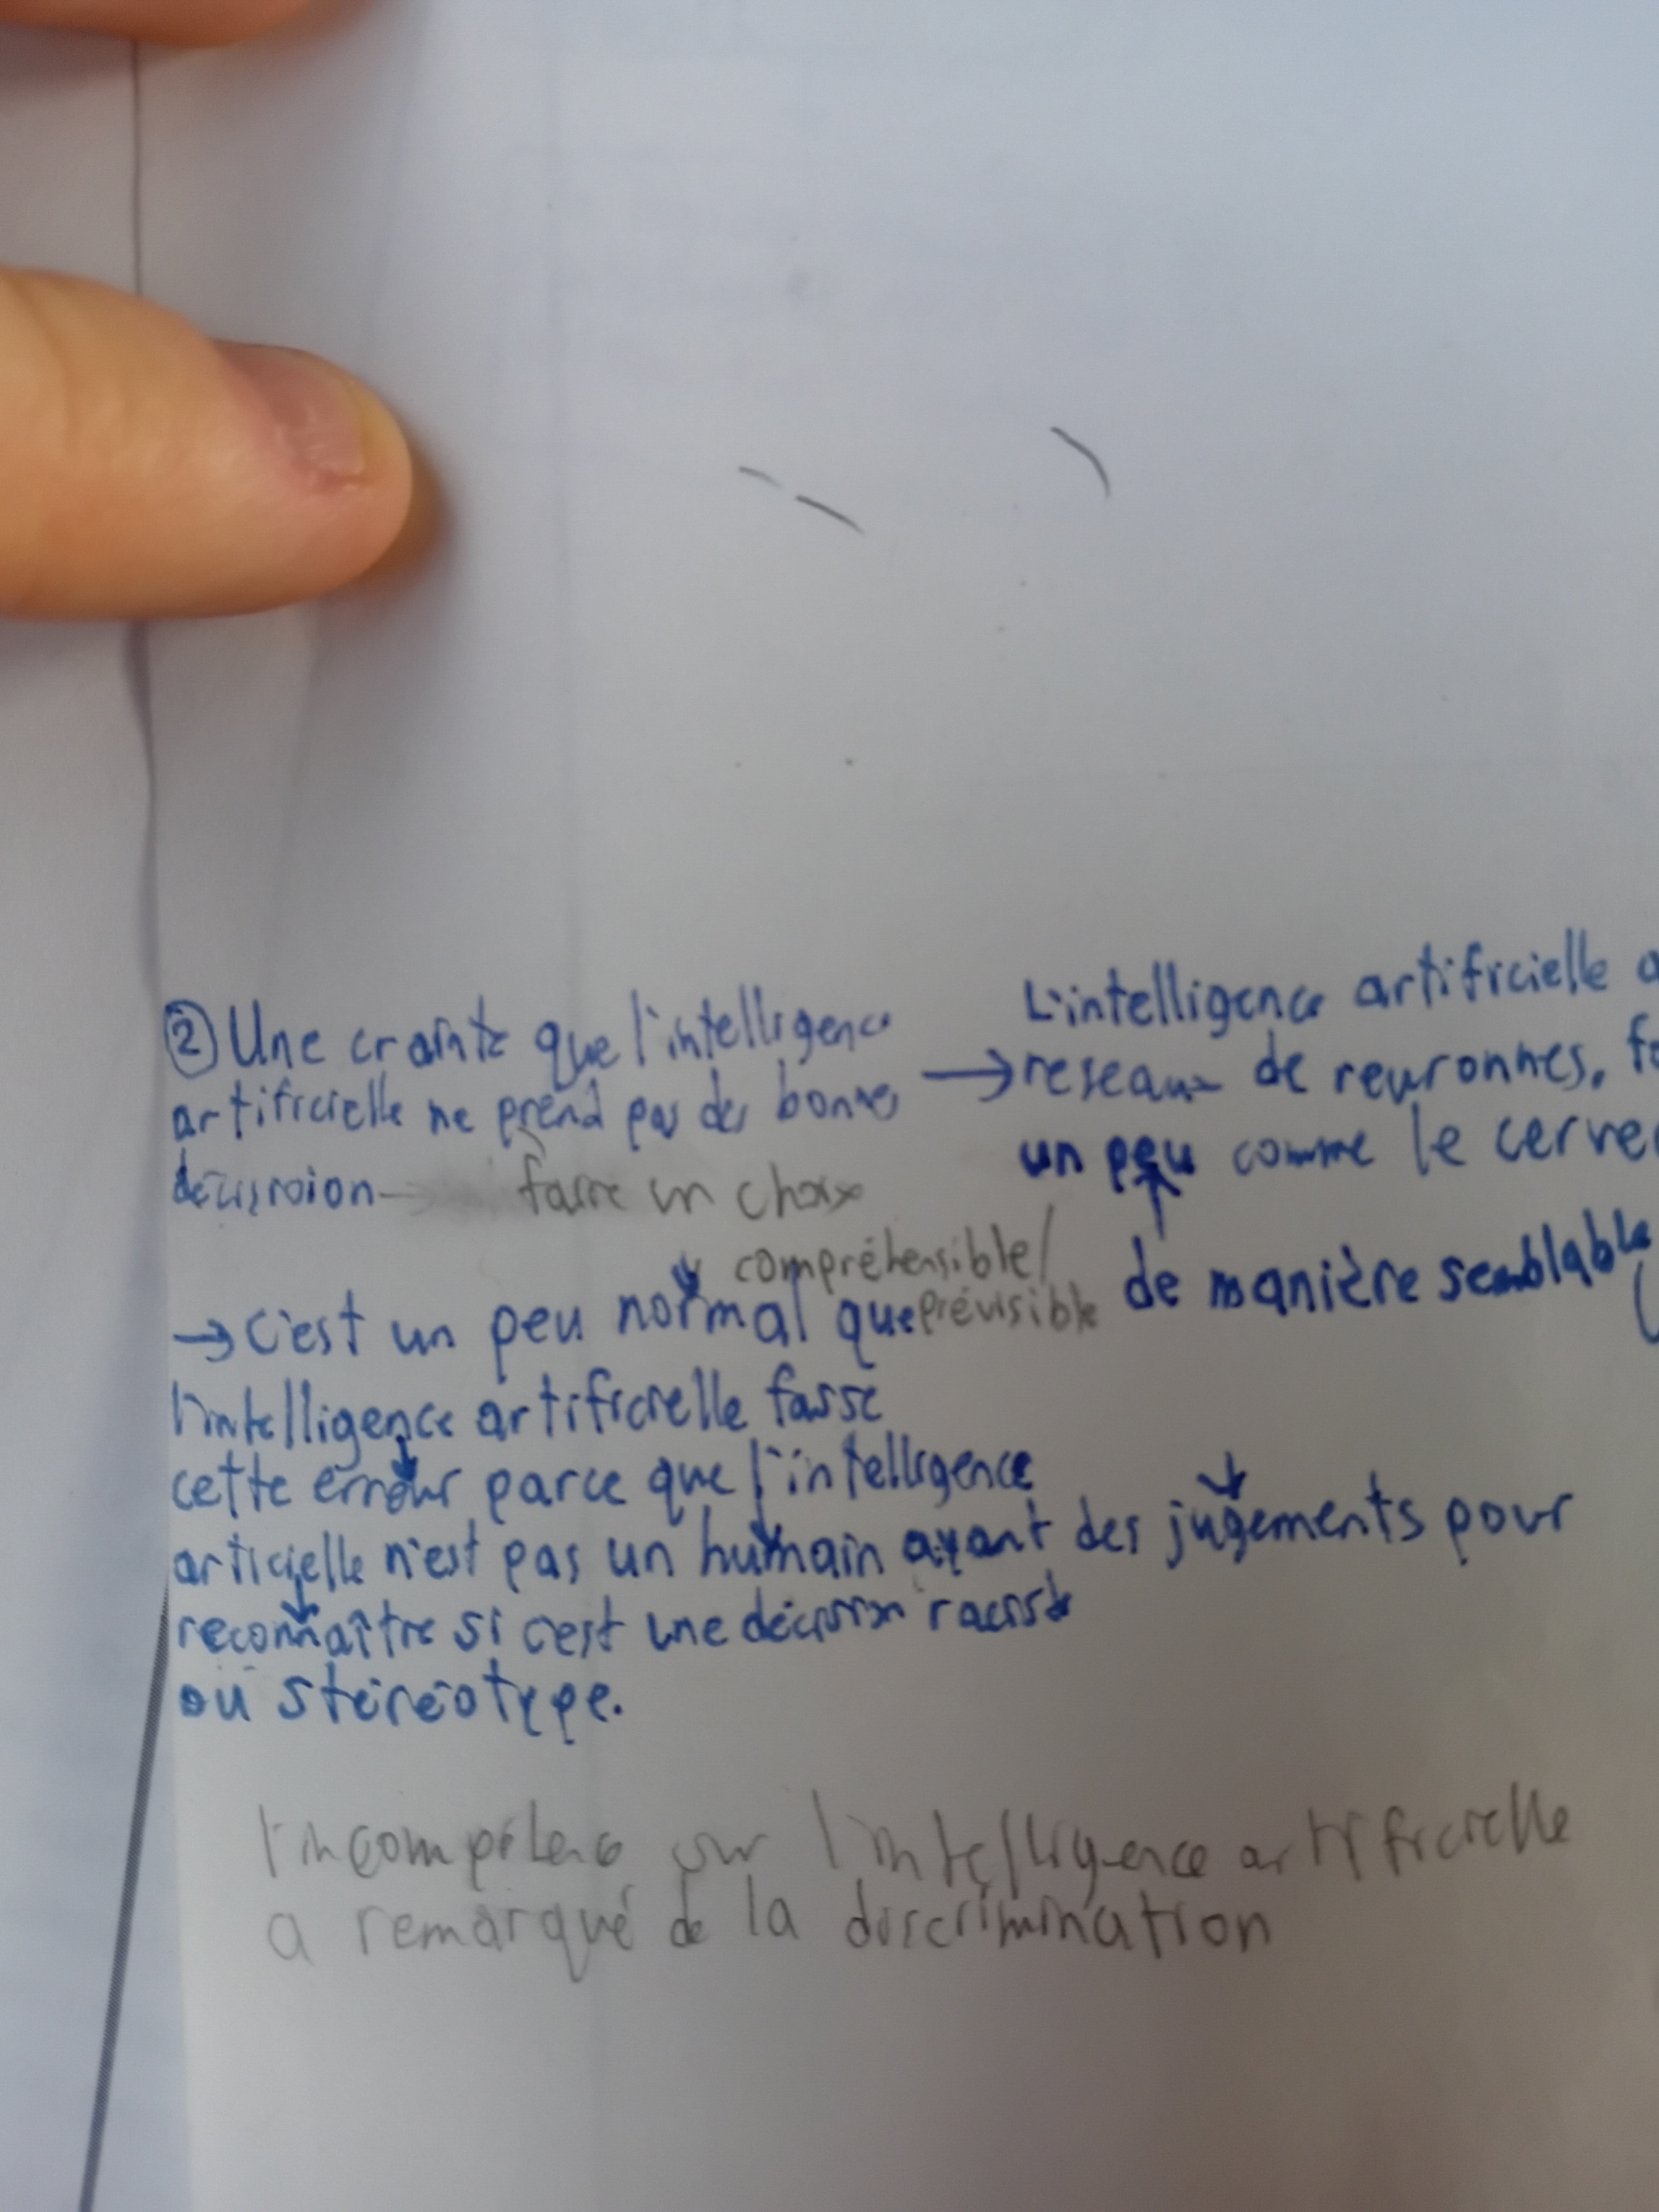 ② Une crainte que l'intelligence
artificielle ne prend pas des bonnes
décision → faire un choix
→ L'intelligence artificielle a
reseaux de neuronnes, fo
un peu comme le cerve
de manière semblable
compréhensible/
prévisible
→ C'est un peu normal que
l'intelligence artificielle fasse
cette erreur parce que l'intelligence
articielle n'est pas un humain ayant des jugements pour
reconnaître si c'est une décision raciste
ou stéréotype.
l'incompétence sur l'intelligence artificielle
a remarqué de la discrimination